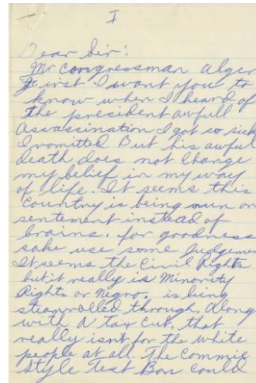 I
Dear Sir:
Mr Congressman Alger
First I want you to
know when I heard of
the president awfull
Assassination I got so sick
I vomitted But his awful
death does not change
my belief in my way
of life. It seems this
country is being run on
sentement instead of
brains. for goodness
sake use some Judgement
It seems the Civil Rights
but it really is Minority
Rights or Negro. is being
steamrolled through. Along
with A tax cut, that
really isnt for the white
people at all. The Commie
Style Test Ban could